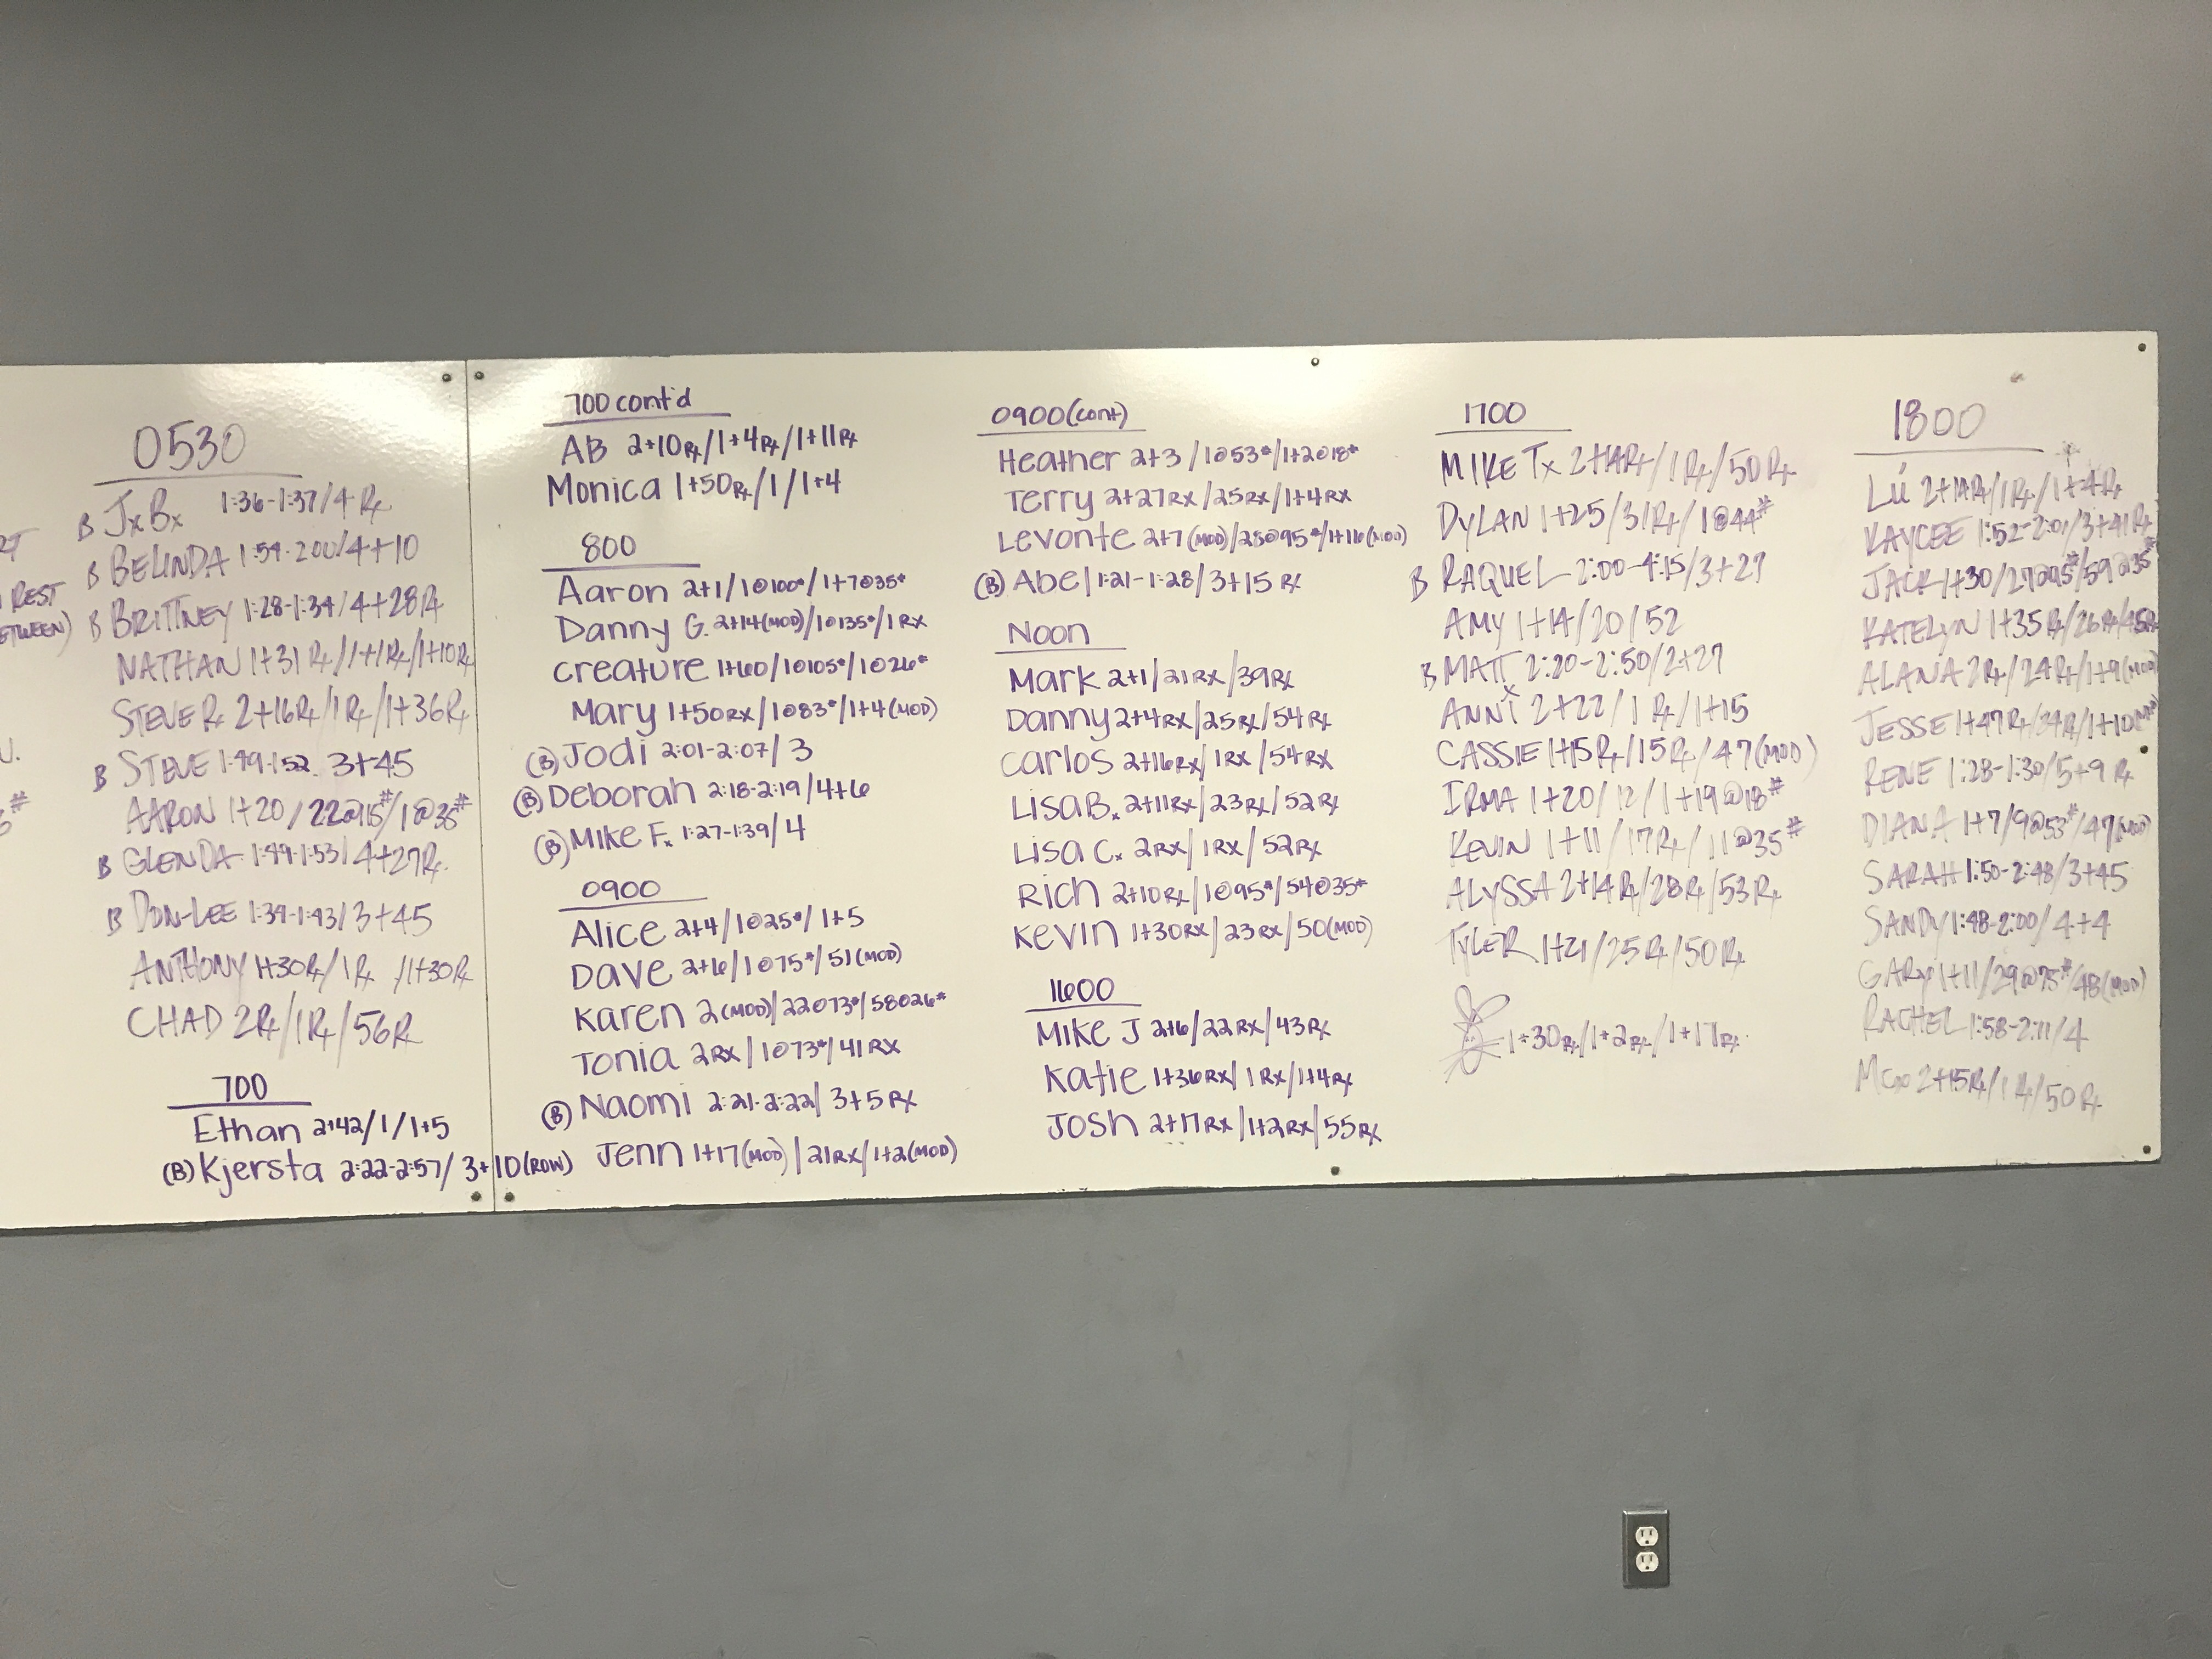 RT
REST
ETWEEN)
U.
#
0530
B JxBx 1:36-1:37/4 Rx
B BELINDA 1:54-2:00/4+10
B BRITTNEY 1:28-1:34/4+28Rx
NATHAN 1+31 Rx/1+1Rx/1+10Rx
STEVE R. 2+16Rx/1Rx/1+36Rx
B STEVE 1:49-1:52 3+45
AARON 1+20/22@95#/1@35#
B GLENDA 1:49-1:53/4+27Rx
B DON-LEE 1:39-1:43/3+45
ANTHONY 1+30Rx/1Rx/1+30Rx
CHAD 2Rx/1Rx/56Rx
700
Ethan 2+42/1/1+5
(B) Kjersta 2:22-2:57/3+10(ROW)
700 cont'd
AB 2+10Rx/1+4Rx/1+11Rx
Monica 1+50Rx/1/1+4
800
Aaron 2+1/1@100#/1+7@35#
Danny G. 2+14(MOD)/1@135#/1 RX
Creature 1+60/1@105#/1@26#
Mary 1+50RX/1@83#/1+4(MOD)
(B) Jodi 2:01-2:07/3
(B) Deborah 2:18-2:19/4+6
(B) Mike F. 1:27-1:39/4
0900
Alice 2+4/1@25#/1+5
Dave 2+6/1@75#/51(MOD)
Karen 2(MOD)/22@73#/58@26#
Tonia 2RX/1@73#/41RX
(B) Naomi 2:21-2:22/3+5RX
Jenn 1+17(MOD)/21RX/1+2(MOD)
0900(cont)
Heather 2+3/1@53#/1+2@18#
Terry 2+27RX/25RX/1+4RX
Levonte 2+7(MOD)/28@95#/1+16(MOD)
(B) Abel 1:21-1:28/3+15 Rx
Noon
Mark 2+1/21RX/39Rx
Danny 2+4RX/25Rx/54Rx
Carlos 2+16RX/1RX/54RX
Lisa B. 2+11RX/23Rx/52Rx
Lisa C. 2RX/1RX/52Rx
Rich 2+10Rx/1@95#/54@35#
Kevin 1+30RX/23RX/50(MOD)
1600
Mike J 2+6/22RX/43RX
Katie 1+36RX/1RX/1+4Rx
Josh 2+17RX/1+2RX/55RX
1700
MIKE Tx 2+14Rx/1Rx/50Rx
DYLAN 1+25/31Rx/1@44#
B RAQUEL 2:00-4:15/3+27
AMY 1+14/20/52
B MATT 2:20-2:50/2+27
ANNi 2+22/1 Rx/1+15
CASSIE 1+15Rx/15Rx/47(MOD)
IRMA 1+20/12/1+19@18#
KEVIN 1+11/17Rx/11@35#
ALYSSA 2+14Rx/28Rx/53Rx
TYLER 1+21/25Rx/50Rx
1+30Rx/1+2Rx/1+17Rx
1800
Lú 2+14Rx/1Rx/1+4Rx
KAYCEE 1:52-2:01/3+41Rx
JACK 1+30/27@95#/59@35#
KATELYN 1+35Rx/26Rx/45Rx
ALANA 2Rx/24Rx/1+9(MOD)
JESSE 1+47Rx/34Rx/1+10(MOD)
RENE 1:28-1:30/5+9 Rx
DIANA 1+7/9@53#/47(MOD)
SARAH 1:50-2:48/3+45
SANDY 1:48-2:00/4+4
GARY 1+11/29@75#/48(MOD)
RACHEL 1:58-2:11/4
2+15Rx/1Rx/50Rx